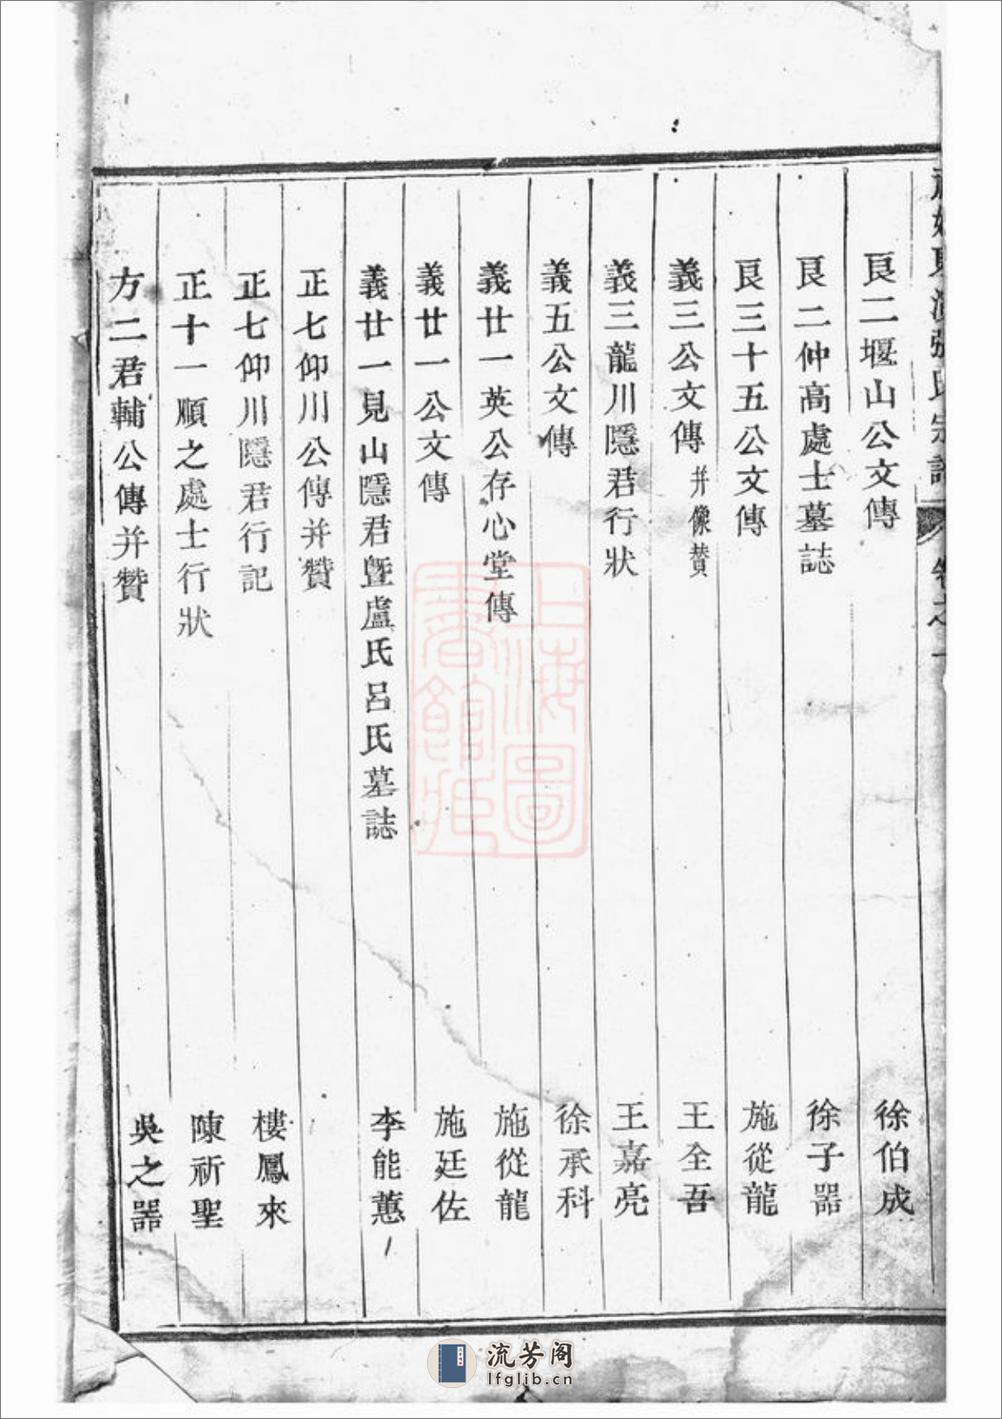 張氏宗譜 卷之一
艮二堰山公文傳 徐伯成
艮二仲高處士墓誌 徐子器
艮三十五公文傳 施從龍
義三公文傳 并像贊 王全吾
義三龍川隱君行狀 王嘉亮
義五公文傳 徐承科
義廿一英公存心堂傳 施從龍
義廿一公文傳 施廷佐
義廿一見山隱君暨盧氏呂氏墓誌 李能蕙
正七仰川公傳并贊
正七仰川隱君行記 樓鳳來
正十一順之處士行狀 陳祈聖
方二君輔公傳并贊 吳之器
上海圖書館藏
流芳阁
lfglib.cn